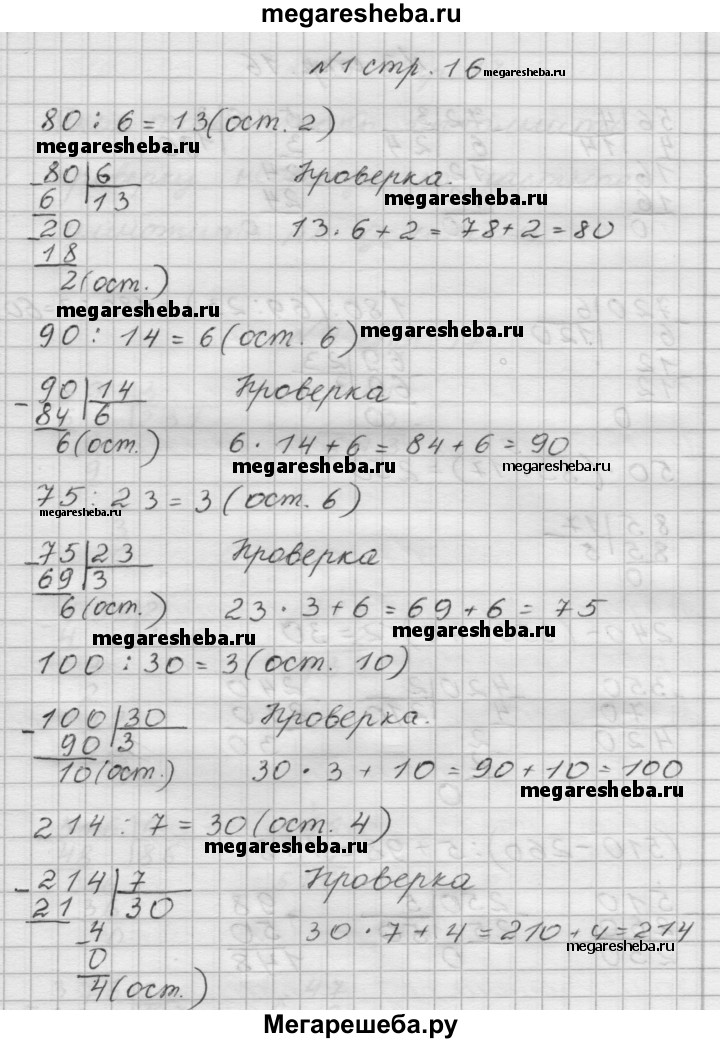 megaresheba.ru
№1 стр. 16 megaresheba.ru
80 : 6 = 13 (ост. 2)
megaresheba.ru
80 | 6 Проверка.
6 13 megaresheba.ru
20 13 · 6 + 2 = 78 + 2 = 80
18
2 (ост.)
megaresheba.ru
90 : 14 = 6 (ост. 6) megaresheba.ru
90 | 14 Проверка
84 6
6 (ост.) 6 · 14 + 6 = 84 + 6 = 90
megaresheba.ru
75 : 23 = 3 (ост. 6)
megaresheba.ru
75 | 23 Проверка
69 3
6 (ост.) 23 · 3 + 6 = 69 + 6 = 75
megaresheba.ru megaresheba.ru
100 : 30 = 3 (ост. 10)
100 | 30 Проверка.
90 3
10 (ост.) 30 · 3 + 10 = 90 + 10 = 100
megaresheba.ru
214 : 7 = 30 (ост. 4)
megaresheba.ru
214 | 7 Проверка
21 30
4 30 · 7 + 4 = 210 + 4 = 214
0 megaresheba.ru
4 (ост.)
Мегарешеба.ру